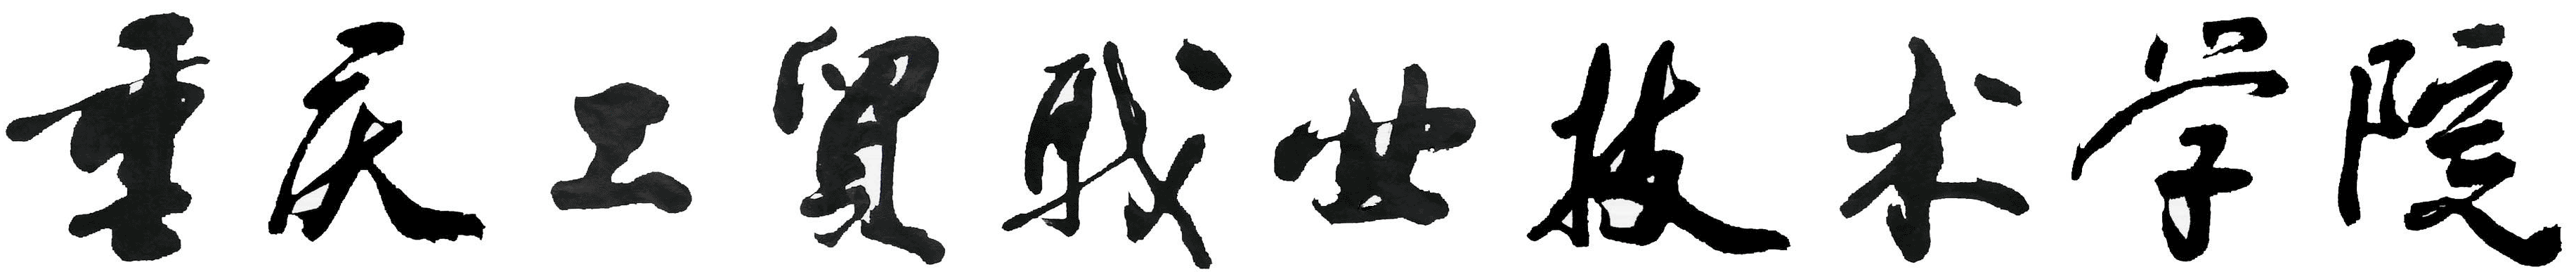 重庆工贸职业技术学院